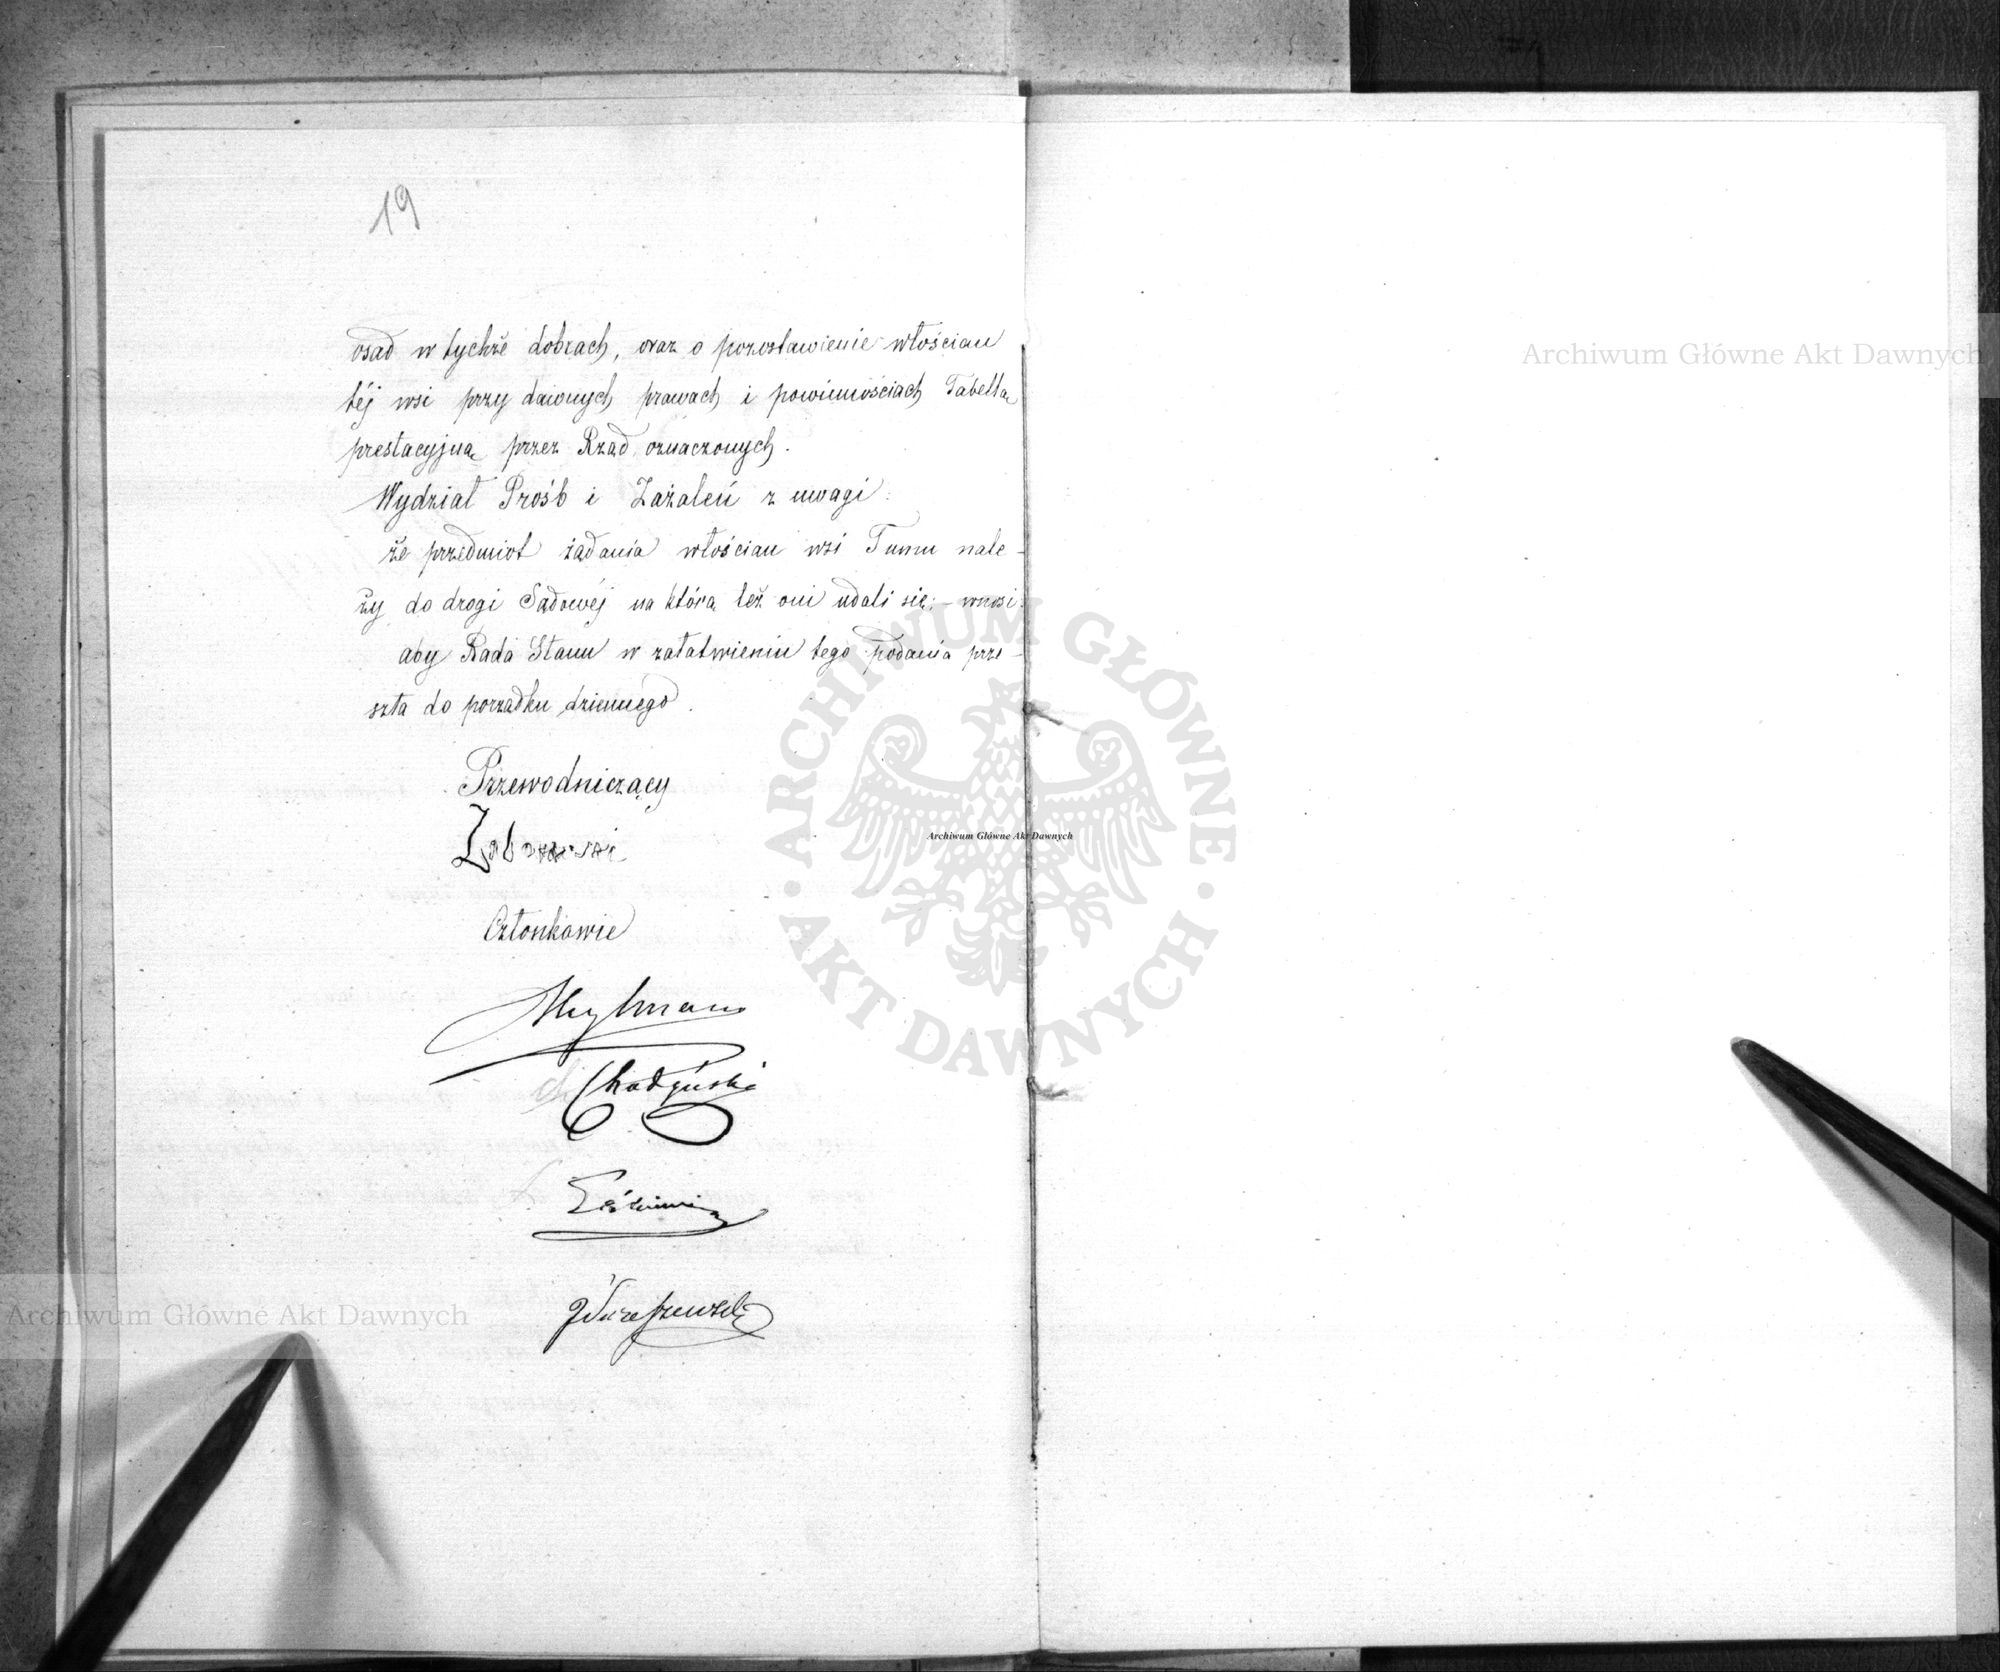 19
osad w tychże dobrach, oraz o pozostawienie włościan
téj wsi przy dawnych prawach i powinnościach Tabellą
prestacyjną przez Rząd oznaczonych.
Wydział Próśb i Zażaleń z uwagi:
że przedmiot żądania włościan wsi Tumu nale-
ży do drogi Sądowéj na którą też oni udali się; – wnosi:
aby Rada Stanu w załatwieniu tego podania prze-
szła do porządku dziennego.
Przewodniczący
Członkowie
Heylman
Archiwum Główne Akt Dawnych
Archiwum Główne Akt Dawnych
Archiwum Główne Akt Dawnych
ARCHIWUM GŁÓWNE
AKT DAWNYCH